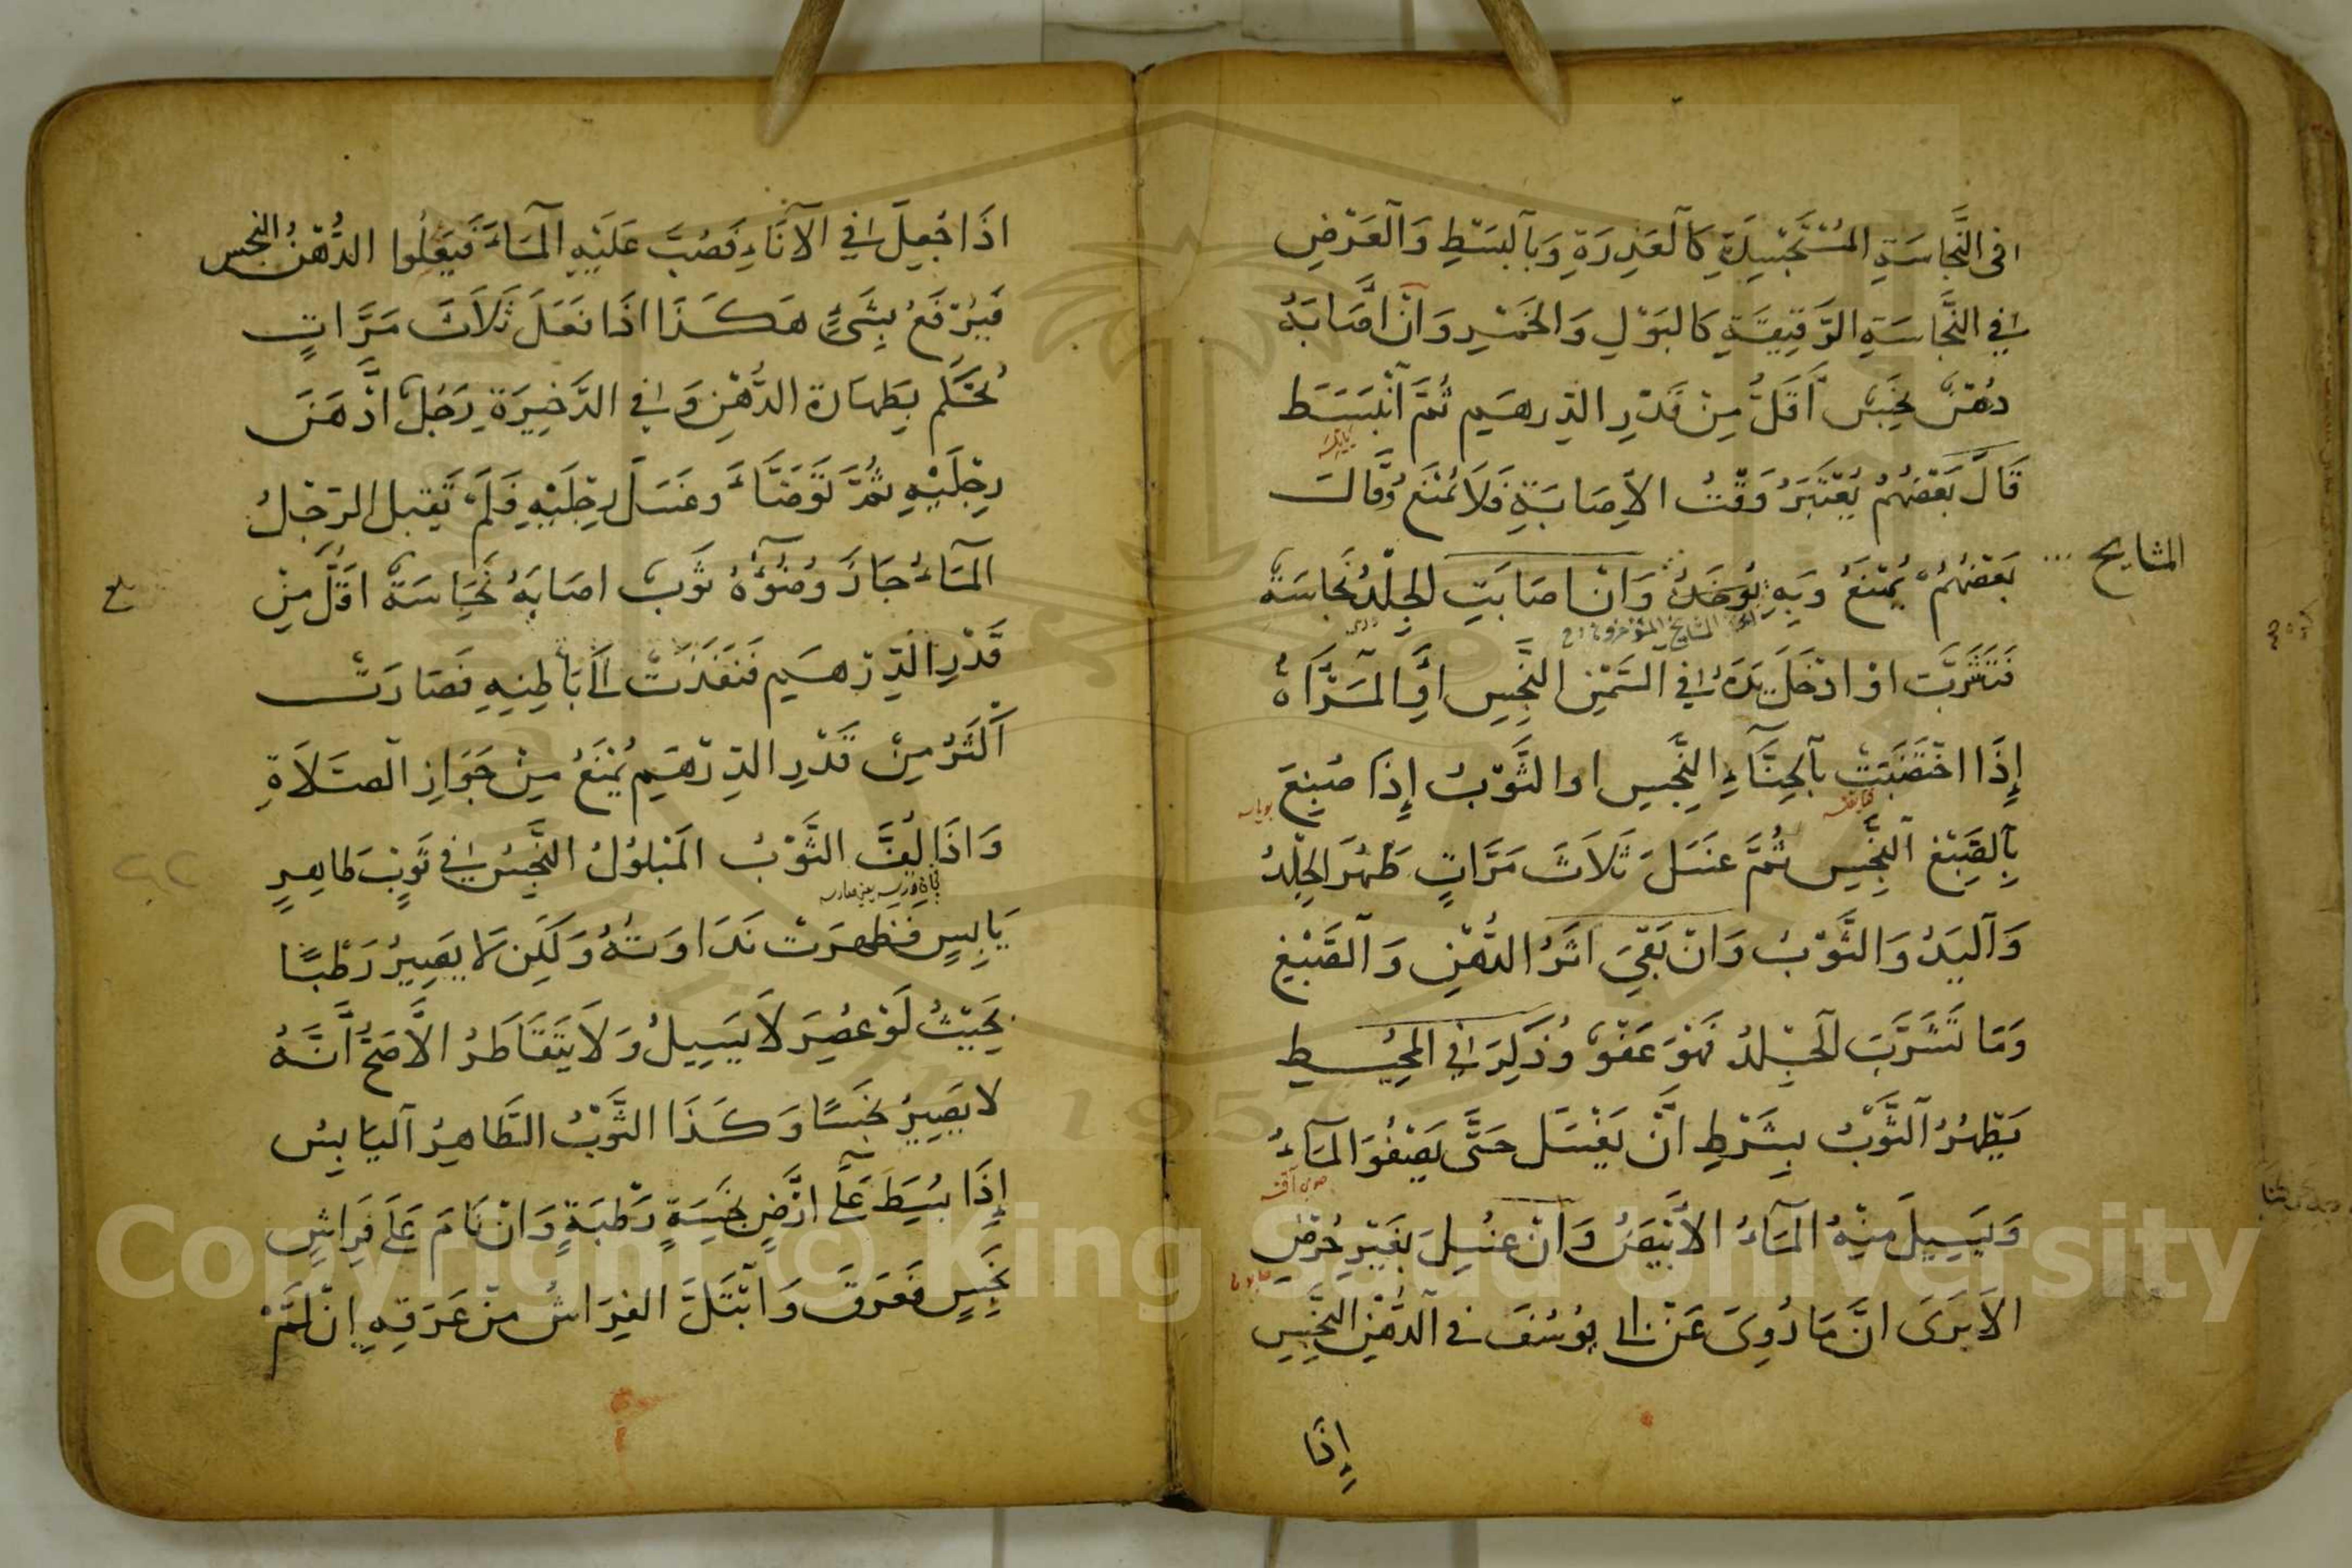 في النَّجَاسَةِ المُسْتَجْسِدَةِ كَالْعَذِرَةِ وَبِالْبَسْطِ وَالْعَرْضِ
في النَّجَاسَةِ الرَّقِيقَةِ كَالبَوْلِ وَالخَمْرِ وَانْ اَصَابَهُ
دُهْنٌ نَجِسٌ اَقَلُّ مِنْ قَدْرِ الدِّرهَمِ ثُمَّ انْبَسَطَ
قَالَ بَعْضُهُمْ يُعْتَبَرُ وَقْتُ الاِصَابَةِ فَلَا يُمْنَعُ وَقَالَ
بَعْضُهُمْ يُمْنَعُ وَبِهِ يُوخَذُ وَانْ اصَابَتِ الجِلْدُ نَجَاسَةٌ
المشايخ
فَتَشَرَّبَتْ اوْ ادْخَلَ يَدَهُ في السَّمْنِ النَّجِسِ اَوِ المَرْاَةُ
إِذَا اخْتَضَبَتْ بِالحِنَّاءِ النَّجِسِ او الثَّوْبُ إِذَا صُبِغَ
بِالصِّبْغِ النَّجِسِ ثُمَّ غسَلَ ثَلَاثَ مَرَّاتٍ طَهُرَ الجِلْدُ
وَالْيَدُ وَالثَّوْبُ وَانْ بَقِيَ اثَرُ الدُّهْنِ وَالصِّبْغِ
وَمَا تَشَرَّبَ الْجِلْدُ فَهْوَ عَفْوٌ وُذَكِرَ في المُحِيْطِ
يَطْهُرُ الثَّوْبُ بِشَرْطِ انْ يَغْسَل حَتَّى يَصْفُوَ المَاءُ
وَيَسِيلَ مِنْهُ المَاءُ الاَبْيَضُ وَانْ غسُلَ بغَيْرِ حُرْضٍ
الاَ يَرَى انَّ مَا رُوِىَ عَنْ ابى يُوسُفَ فى الدُّهْنِ النَّجِسِ
إِذَا
اذَا جُعِلَ في الْاِنَاءِ فَصُبَّ عَلَيْهِ المَاءُ فَيَعْلُوا الدُّهْنُ النجس
فَيُرْفَعُ بِشَيْءٍ هَكَذَا اذَا فعَلَ ثَلَاثَ مَرَّاتٍ
يُحْكَم بِطَهارَة الدُّهْنِ وَفي الذَّخِيرَةِ رَجُلٌ ادَّهَنَ
رِجْلَيْهِ ثُمَّ تَوَضَّاءَ وَغسَلَ رِجْلَيْهِ فَلَمْ يَقبل الرِّجْلُ
المَاءَ جَازَ وُضُوْءُهُ ثَوْبٌ اصَابَهُ نَجَاسَةٌ اقَلُّ مِنْ
قَدْرِ الدِّرْهَمِ فَنَفَذَتْ الى بَاطِنِهِ فَصَارَتْ
اَكْثَرُ مِنْ قَدْرِ الدِّرْهَمِ يُمْنَعُ مِنْ جَوَازِ الصَّلَاةِ
وَاذَا لُفَّ الثَّوْبُ المَبْلُوْلُ النَّجِسُ في ثَوْبٍ طَاهِرٍ
يَابِسٍ فظهَرَتْ نَدَاوَتُهُ وَلَكِن لَا يَصِيْرُ رَطْبًا
بِحَيْثُ لَوْ عُصِرَ لَا يَسِيلُ وَلَا يَتَقَاطَرُ الاَصَحُّ اَنَّهُ
لا يَصِيْرُ نَجسًا وَكَذَا الثَّوْبُ الطَّاهِرُ اليَابِسُ
إِذَا بسُطَ عَلَى ارْضٍ نَجِسَةٍ رَطْبَةٍ وَانْ نَامَ عَلَى فِرَاشٍ
نَجِسٍ فَعَرَقَ وَابْتَلَّ الفِرَاشُ مِنْ عَرَقِهِ إِنْ لَمْ
Copyright © King Saud University
1957